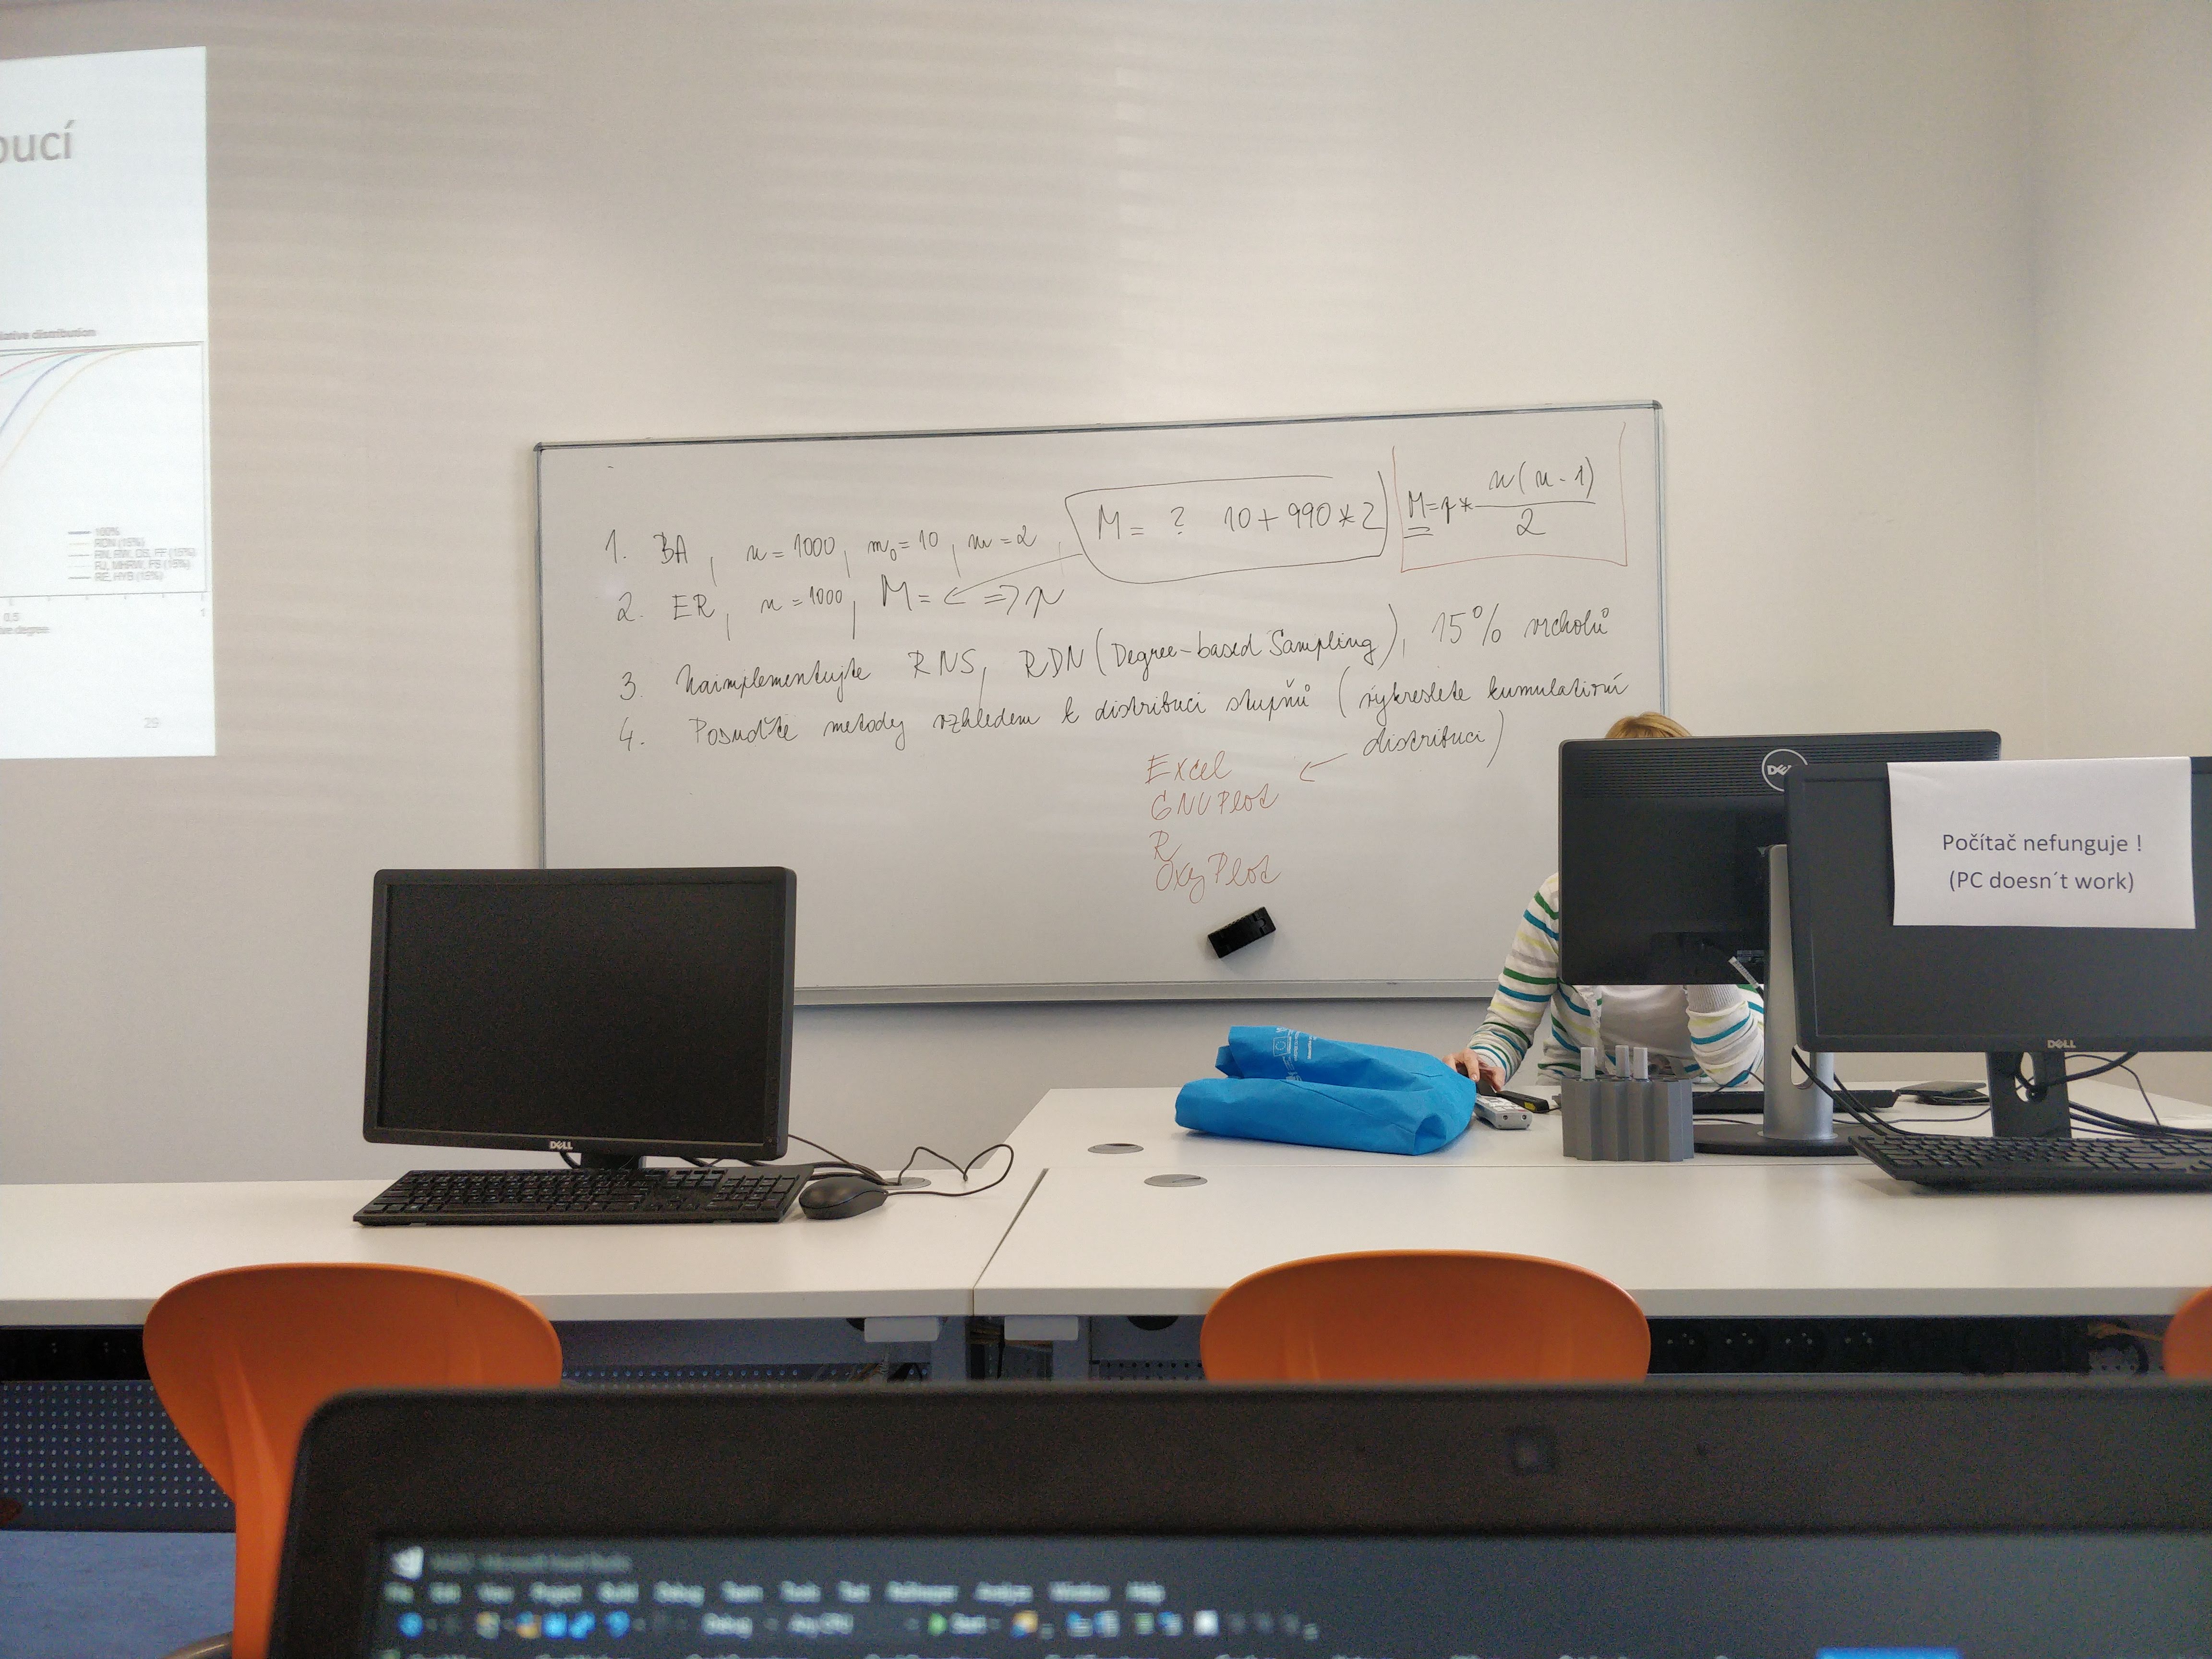 bucí
lative distribution
100%
RDN (15%)
RN, RW, DS, FF (15%)
RJ, MHRW, FS (15%)
RE, HYB (15%)
0,5
1
29
1. BA, n = 1000, m₀ = 10, m = 2, M = ? 10 + 990 * 2
M = p * n(n-1) / 2
2. ER, n = 1000, M = ← ⇒ p
3. Naimplementujte RNS, RDN (Degree-based Sampling), 15% vrcholů
4. Posuďte metody vzhledem k distribuci stupňů (vykreslete kumulativní
distribuci)
Excel
GNUPlot
R
OxyPlot
DELL
Počítač nefunguje !
(PC doesn´t work)
DELL
DELL
File Edit View Project Build Debug Team Tools Test ReSharper Analyze Window Help
Debug Any CPU Start